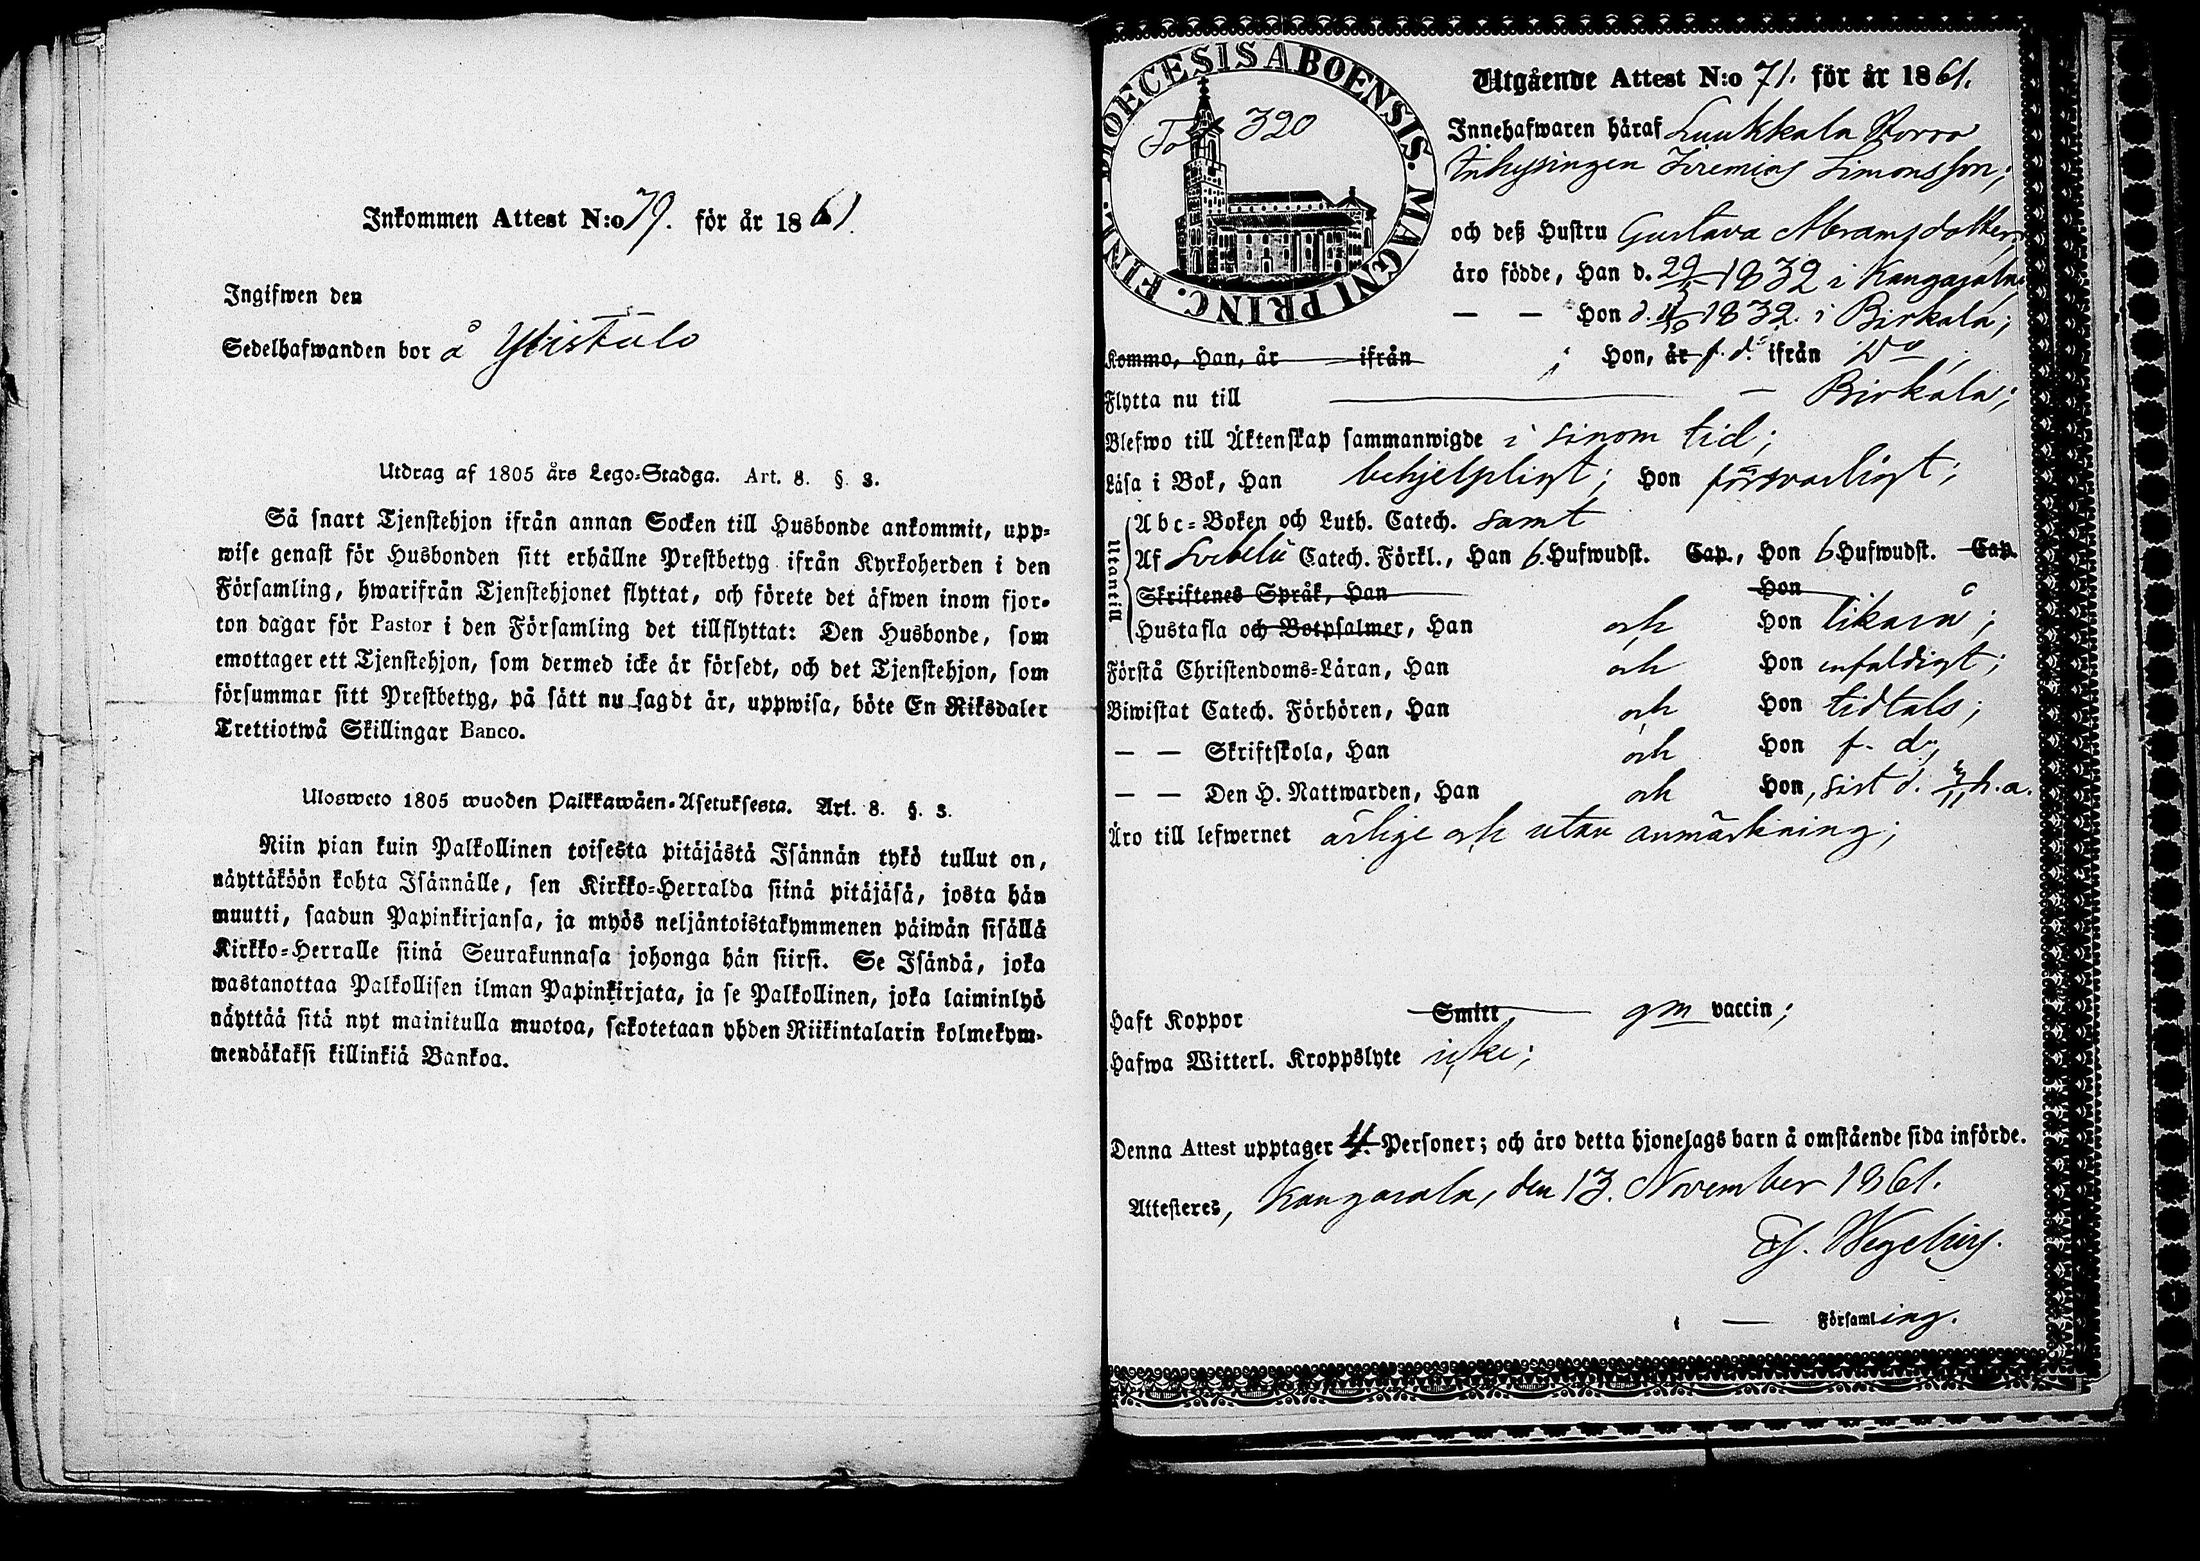 Inkommen Attest N:o 79. för år 1861.
Ingifwen den
Sedelhafwanden bor å
Utdrag af 1805 års Lego-Stadga. Art. 8. §. 3.
Så snart Tjenstehjon ifrån annan Socken till Husbonde ankommit, upp-
wise genast för Husbonden sitt erhållne Prestbetyg ifrån Kyrkoherden i den
Församling, hwarifrån Tjenstehjonet flyttat, och förete det äfwen inom fjor-
ton dagar för Pastor i den Församling det tillflyttat: Den Husbonde, som
emottager ett Tjenstehjon, som dermed icke är försedt, och det Tjenstehjon, som
försummar sitt Prestbetyg, på sätt nu sagdt är, uppwisa, böte En Riksdaler
Trettiotwå Skillingar Banco.
Ulosweto 1805 wuoden Palkkawäen-Asetuksesta. Art. 8. §. 3.
Niin pian kuin Palkollinen toisesta pitäjästä Isännän tykö tullut on,
näyttäköön kohta Isännälle, sen Kirkko-Herralda siinä pitäjäsä, josta hän
muutti, saadun Papinkirjansa, ja myös neljäntoistakymmenen päiwän sisällä
Kirkko-Herralle siinä Seurakunnasa johonga hän siirsi. Se Isändä, joka
wastanottaa Palkollisen ilman Papinkirjata, ja se Palkollinen, joka laiminlyö
näyttää sitä nyt mainitulla muotoa, sakotetaan yhden Riikintalarin kolmekym-
mendäkaksi killinkiä Bankoa.
DIOECESIS ABOENSIS. MAGNI PRINC. FINL.
Fol 320
Utgående Attest N:o 71. för år 1861.
Innehafwaren häraf Luukkala
Inhysingen Jeremias Simonsson;
och deß Hustru Gustava Abramsdotter
äro födde, Han d. 29/3 1832 i Kangasala
— — Hon d. 11/10 1832. i Birkala;
Kommo, Han, år ifrån ; Hon, år f. d. ifrån Do
Flytta nu till — Birkala;
Blefwo till Äktenskap sammanwigde i sinom tid;
Läsa i Bok, Han behjelpligt; Hon försvarligt;
Utantill
Abc-Boken och Luth. Catech. samt
Af Svebelii Catech. Förkl., Han 6. Hufwudst. Cap., Hon 6 Hufwudst. Cap.
Skriftenes Språk, Han Hon
Hustafla och Botpsalmer, Han och Hon likaså;
Förstå Christendoms-Läran, Han och Hon enfaldigt;
Biwistat Catech. Förhören, Han och Hon tidtals;
— — Skriftskola, Han och Hon f. d;
— — Den H. Nattwarden, Han och Hon, sist d. 3/11 h. a.
Äro till lefwernet ärlige och utan anmärkning;
Haft Koppor Smitt gm vaccin;
Hafwa Witterl. Kroppslyte icke;
Denna Attest upptager 4. Personer; och äro detta hjonelags barn å omstående sida införde.
Attesteres, Kangasala, den 13. November 1861.
Wegelius.
— Församling.